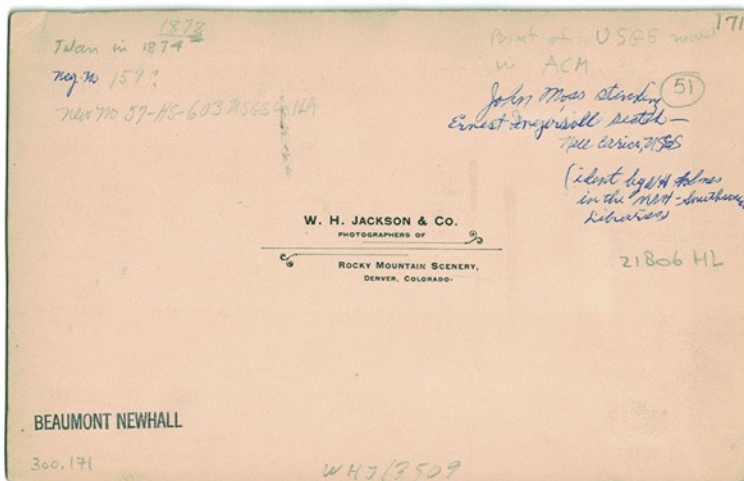 1873
Taken in 1874
Neg. No 157?
New No 57-HS-603 USGS
Print of USGS
in ACM
171
51
John Moss standing
Ernest Ingersoll seated —
USGS
(ident by WH Holmes
in the
Libraries)
21806 HL
W. H. JACKSON & Co.
PHOTOGRAPHERS OF
ROCKY MOUNTAIN SCENERY,
DENVER, COLORADO.
BEAUMONT NEWHALL
300.171
WHJ/3509